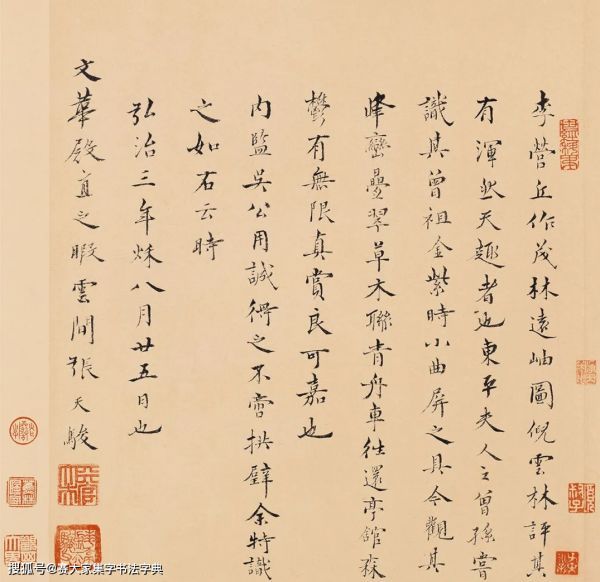 李營丘作茂林遠岫圖倪雲林評其
有渾然天趣者也東平夫人之曾孫嘗
識其曾祖金紫時小曲屏之具今觀其
峰巒疊翠草木聯青舟車往還亭館森
鬱有無限真賞良可嘉也
內監吳公用誠得之不啻拱璧余特識
之如右云時
弘治三年秌八月廿五日也
文華殿直之暇雲間張天駿
搜狐号@赛大家集字书法字典